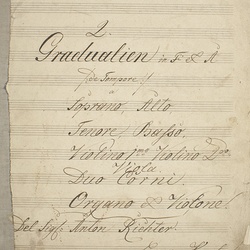 2.
Gradualien in F & A
de Tempore
Soprano, Alto
Tenore, Basso,
Violino Imo Violino 2do
Viola
Duo Corni.
Organo & Violone
Del Sigl: Anton Richter